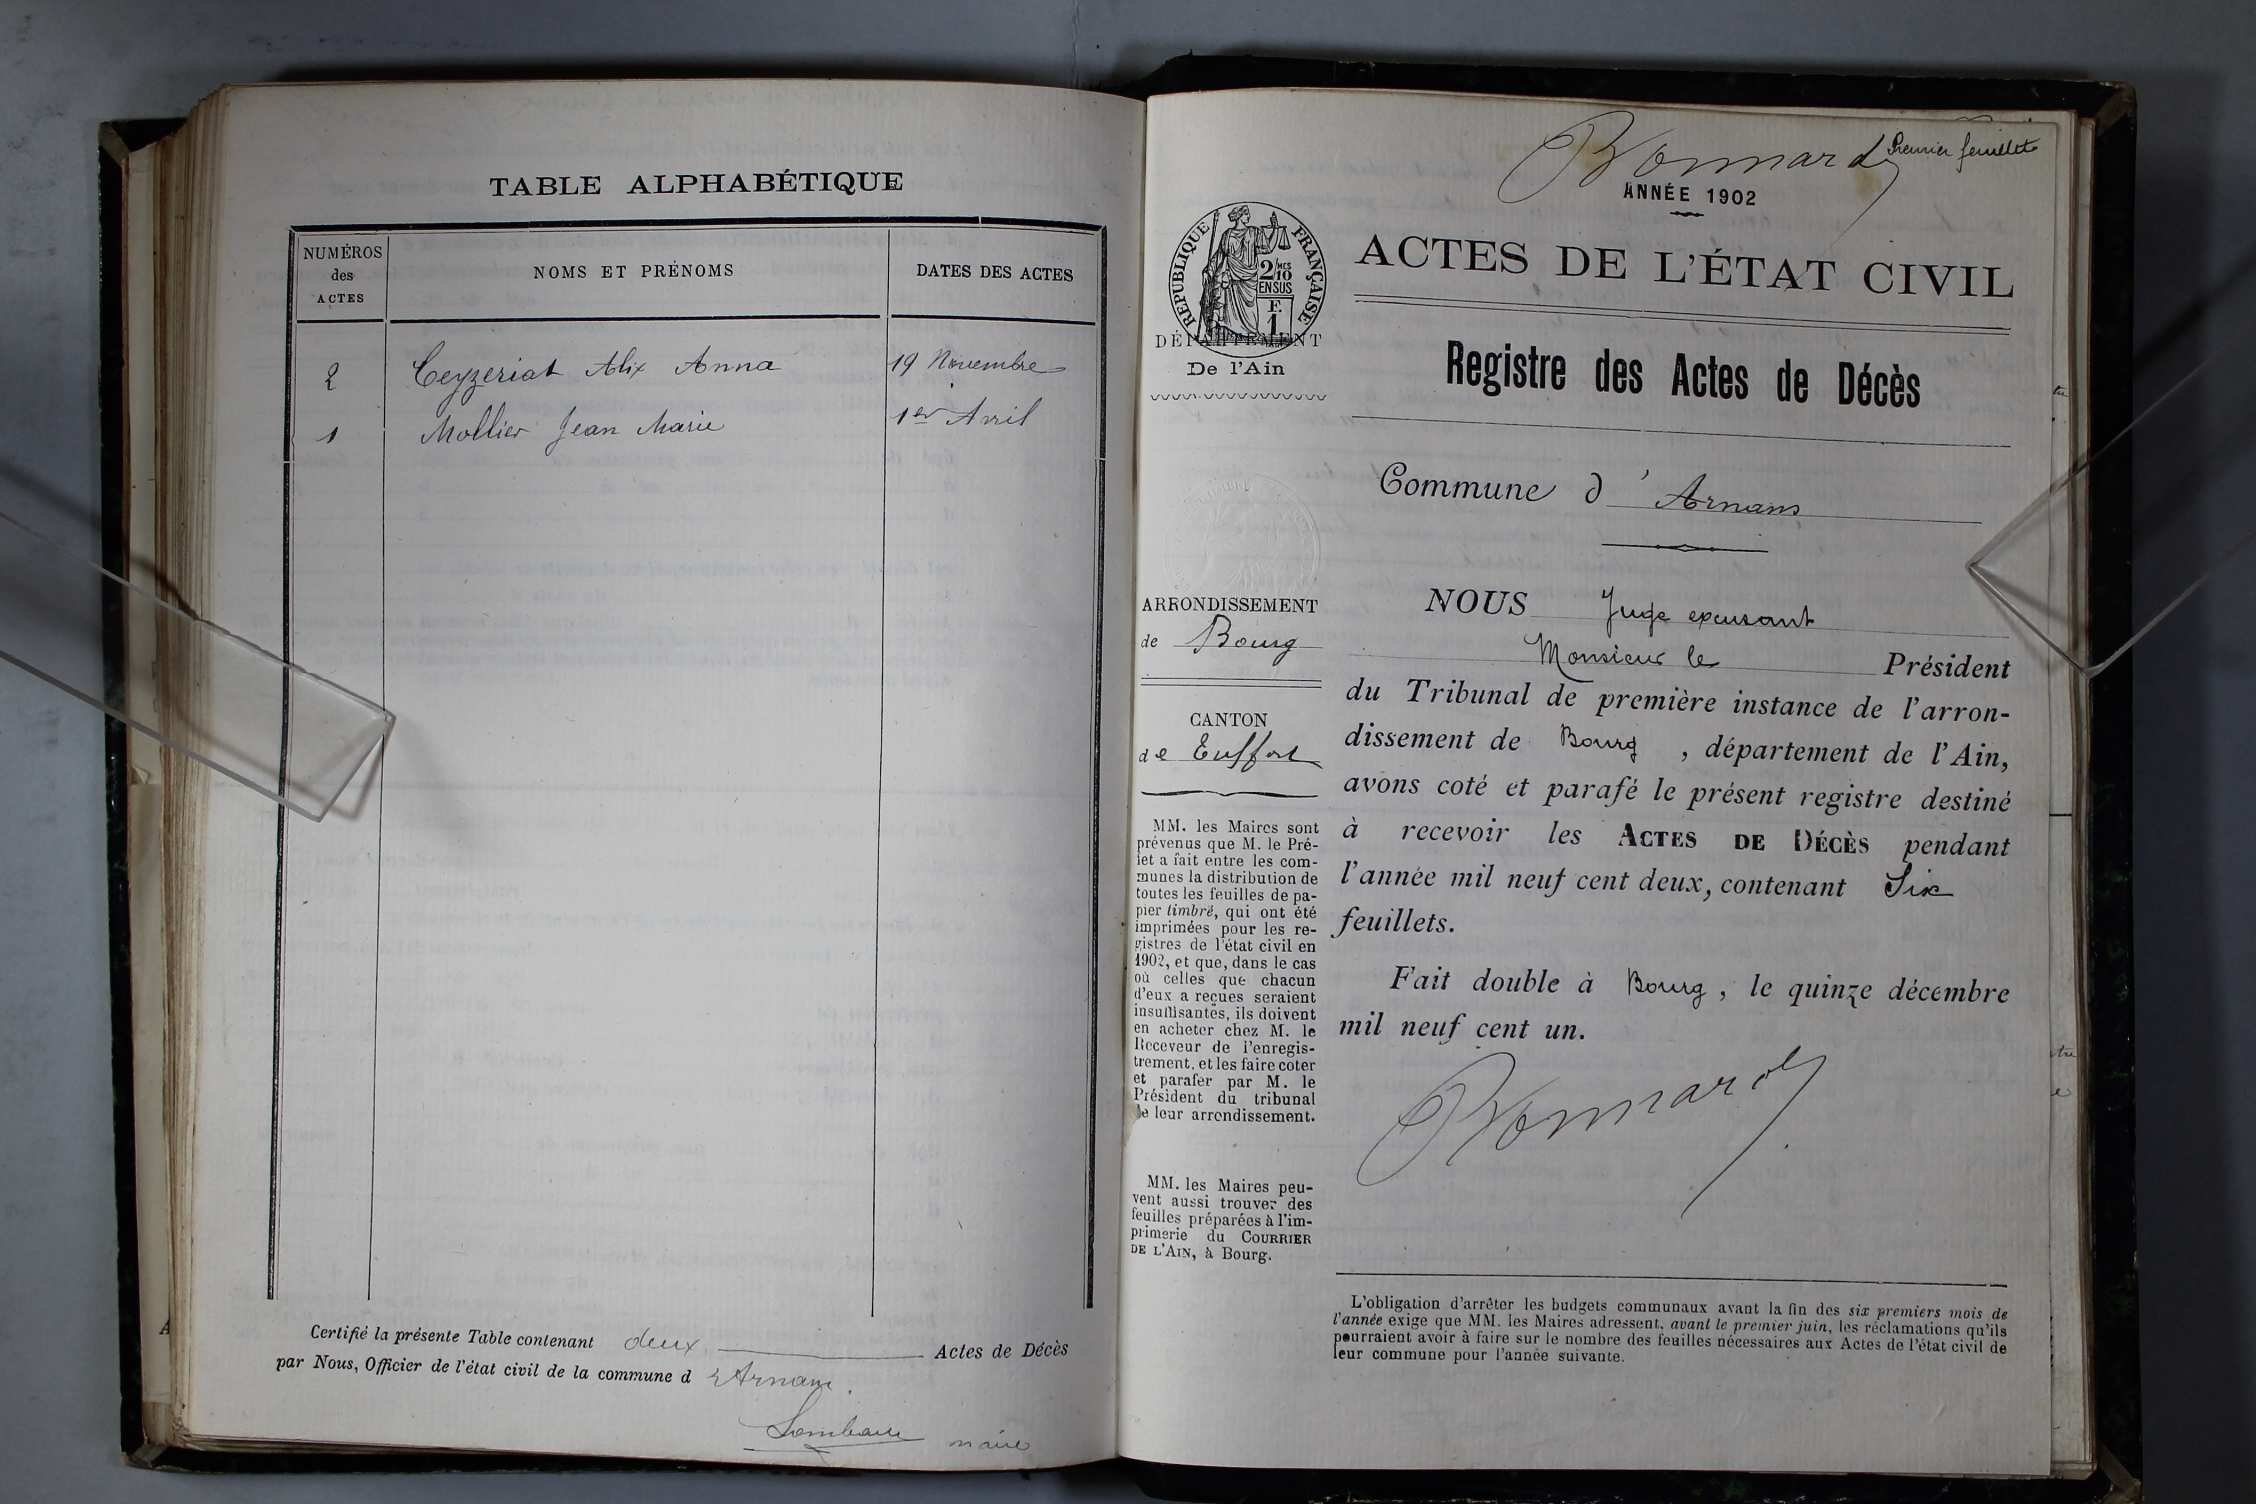 TABLE ALPHABÉTIQUE
NUMÉROS
des
ACTES
NOMS ET PRÉNOMS
DATES DES ACTES
2 Ceyzeriat Alix Anna 19 Novembre
1 Mollier Jean Marie 1er Avril
Certifié la présente Table contenant deux Actes de Décès
par Nous, Officier de l'état civil de la commune d'Arnans.
maire
Bonnard
Premier feuillet
ANNÉE 1902
ACTES DE L'ÉTAT CIVIL
RÉPUBLIQUE FRANÇAISE
2/MES
10
EN SUS
F.
1
DÉPARTEMENT
De l'Ain
Registre des Actes de Décès
Commune d'Arnans
ARRONDISSEMENT
de Bourg
CANTON
de
MM. les Maires sont
prévenus que M. le Pré-
fet a fait entre les com-
munes la distribution de
toutes les feuilles de pa-
pier timbré, qui ont été
imprimées pour les re-
gistres de l'état civil en
1902, et que, dans le cas
où celles que chacun
d'eux a reçues seraient
insuffisantes, ils doivent
en acheter chez M. le
Receveur de l'enregis-
trement, et les faire coter
et parafer par M. le
Président du tribunal
de leur arrondissement.
MM. les Maires peu-
vent aussi trouver des
feuilles préparées à l'im-
primerie du COURRIER
DE L'AIN, à Bourg.
NOUS Juge excusant
Monsieur le Président
du Tribunal de première instance de l'arron-
dissement de Bourg, département de l'Ain,
avons coté et parafé le présent registre destiné
à recevoir les ACTES DE DÉCÈS pendant
l'année mil neuf cent deux, contenant Six
feuillets.
Fait double à Bourg, le quinze décembre
mil neuf cent un.
Bonnard
L'obligation d'arrêter les budgets communaux avant la fin des six premiers mois de
l'année exige que MM. les Maires adressent, avant le premier juin, les réclamations qu'ils
pourraient avoir à faire sur le nombre des feuilles nécessaires aux Actes de l'état civil de
leur commune pour l'année suivante.